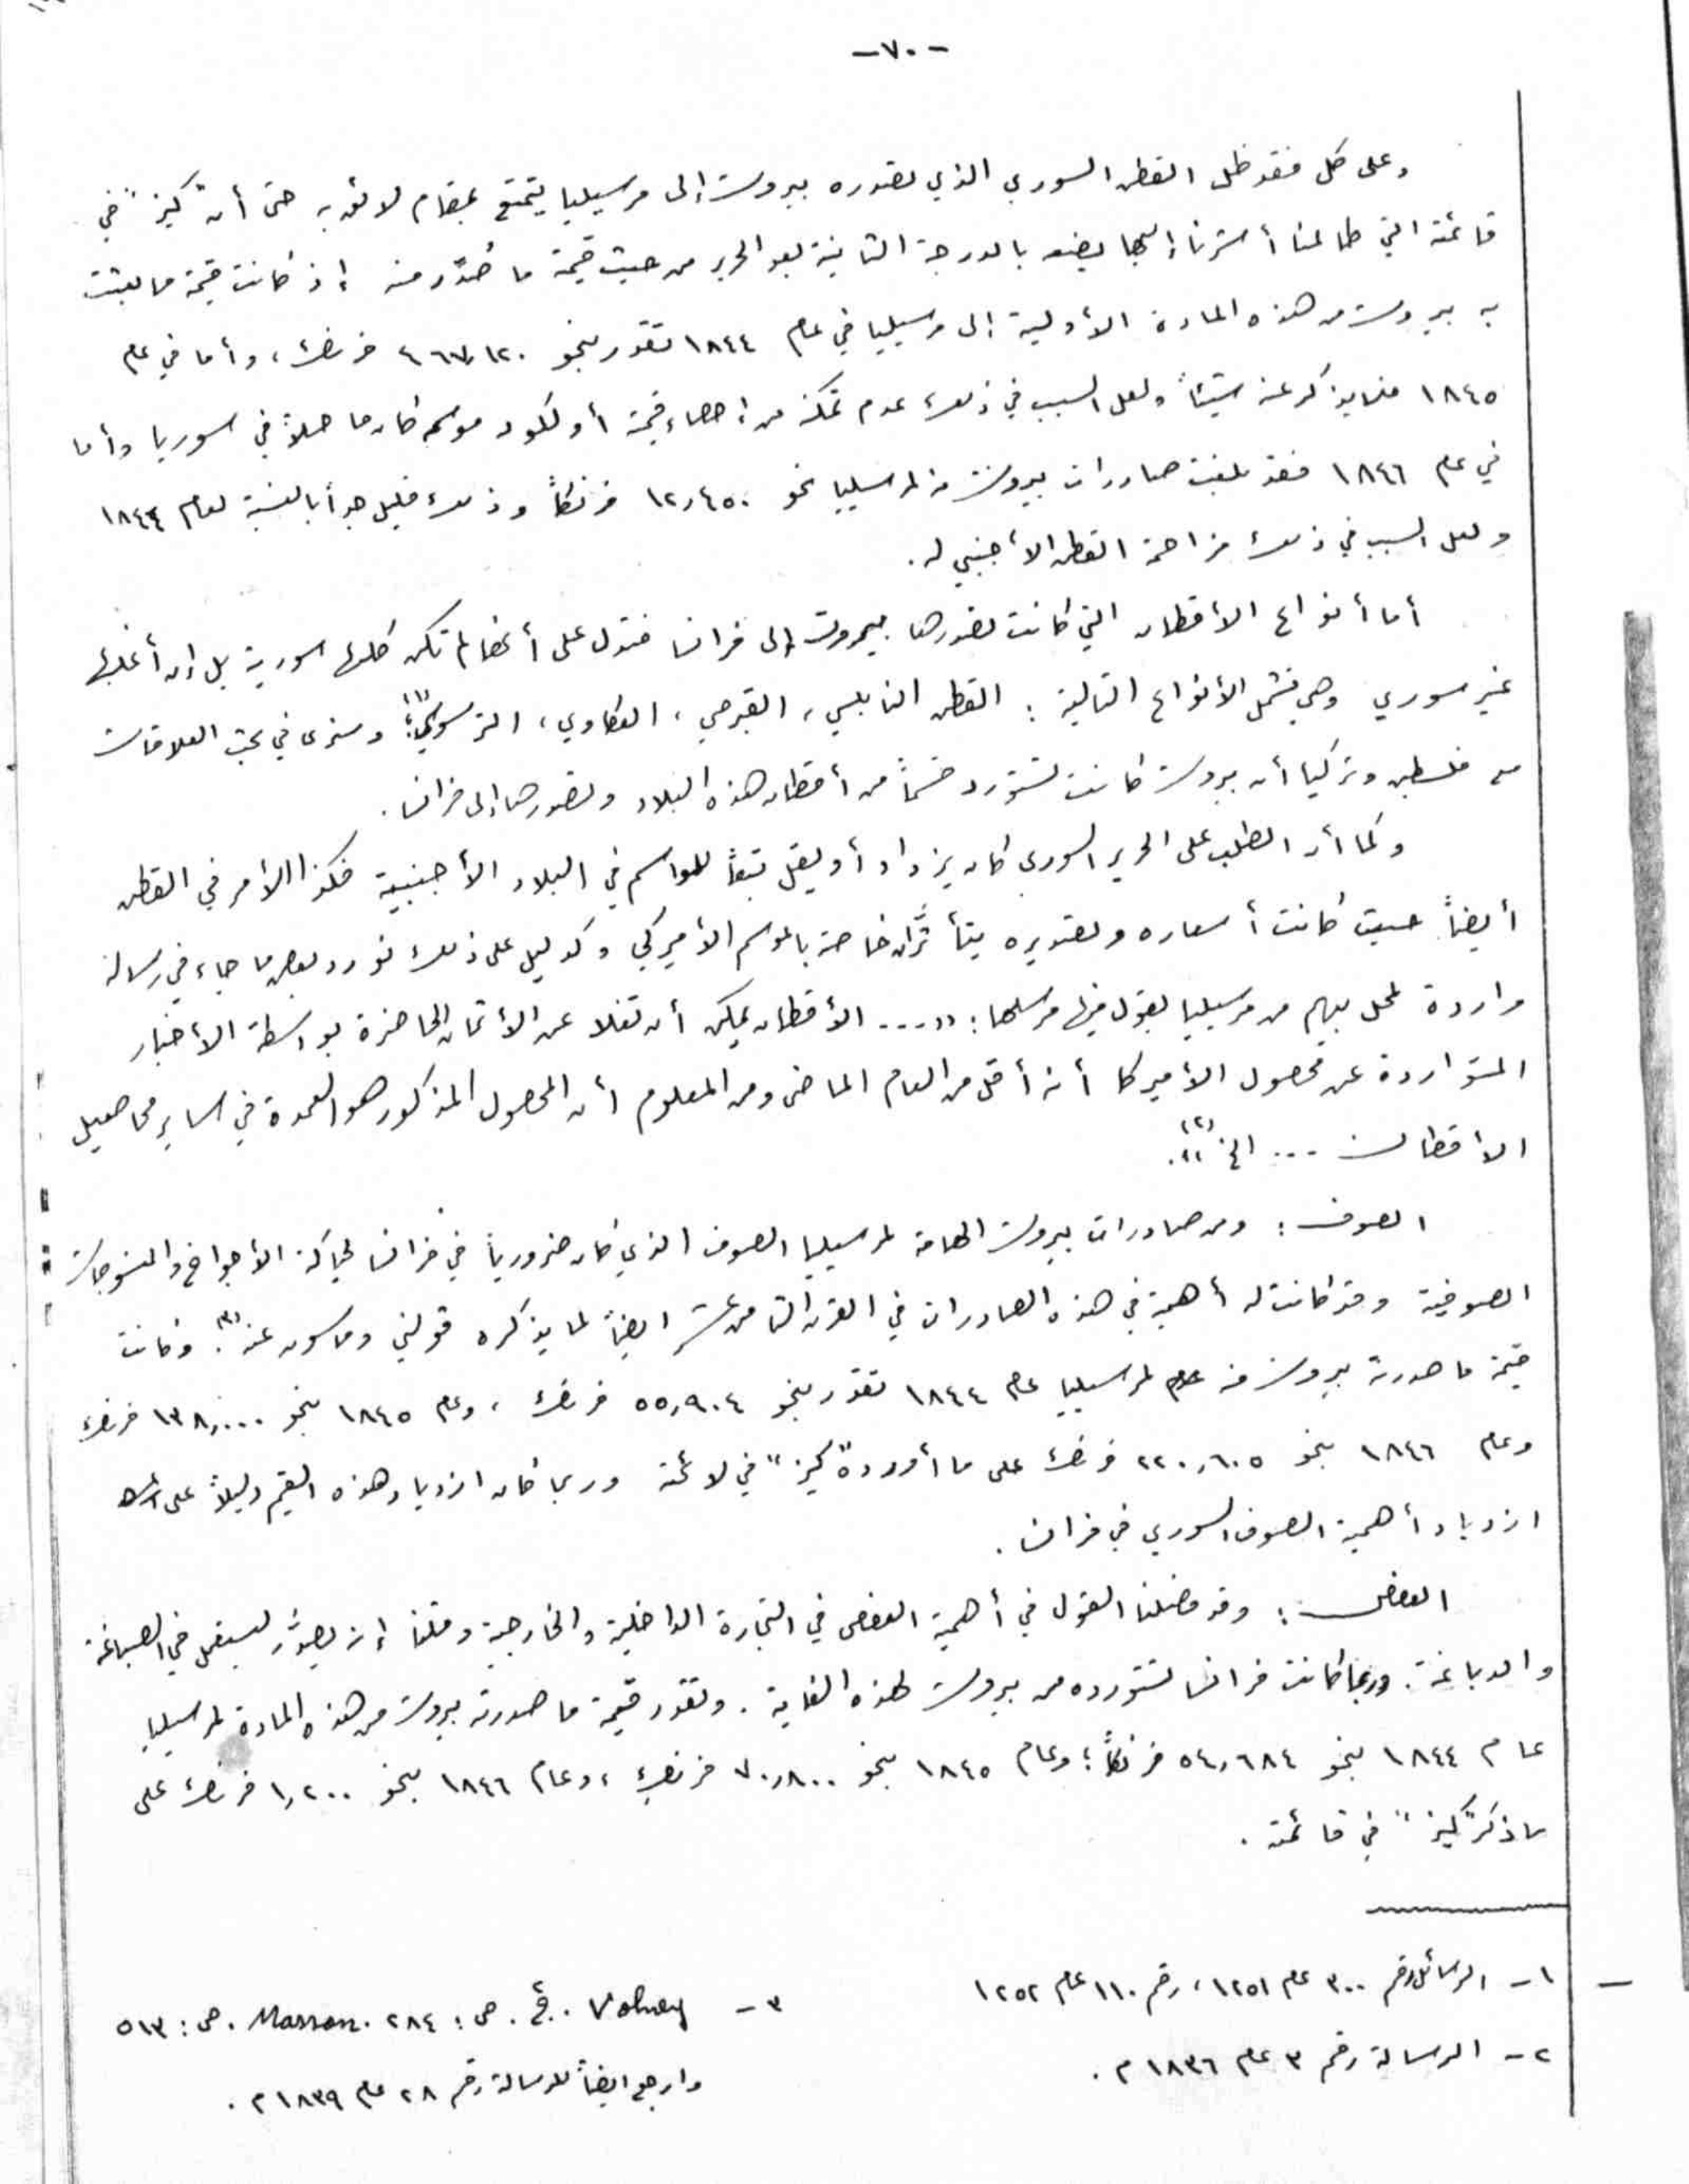 -٧٠-
وعلى كل فقد ظل القطن السوري الذي تصدره بيروت إلى مرسيليا يتمتع بمقام لائق به حتى أن "كيز" في
قائمته التي طالما أشرنا إليها يضعه بالدرجة الثانية بعد الحرير من حيث قيمة ما صُدّر منه إذ كانت قيمة ما بعثت
به بيروت من هذه المادة الأولية إلى مرسيليا في عام ١٨٤٤ تقدر بنحو ٤٦٧,١٢٠ فرنك، وأما في عام
١٨٤٥ فلا يذكر عنه شيئاً ولعل السبب في ذلك عدم تمكنه من إحصاء قيمته أو لكون موسمه كان ماحلاً في سوريا وأما
في عام ١٨٤٦ فقد بلغت صادرات بيروت منه لمرسيليا نحو ١٢,٤٥٠ فرنكاً وذلك قليل جداً بالنسبة لعام ١٨٤٤
ولعل السبب في ذلك مزاحمة القطن الأجنبي له.
أما أنواع الأقطان التي كانت تصدرها بيروت إلى فرنسا فتدل على أنها لم تكن كلها سورية بل إن أغلبها
غير سوري وهي تشمل الأنواع التالية : القطن النابلسي، القبرصي، العكاوي، الترسوسي(١)؛ وسنرى في بحث العلاقات
مع فلسطين وتركيا أن بيروت كانت تستورد قسماً من أقطان هذه البلاد وتصدرها إلى فرنسا.
وكما أن الطلب على الحرير السوري كان يزداد أو يقل تبعاً للمواسم في البلاد الأجنبية فكذا الأمر في القطن
أيضاً حيث كانت أسعاره وتصديره يتأثران خاصة بالموسم الأميركي وكدليل على ذلك نورد بعض ما جاء في رسالة
واردة لمحل بيهم من مرسيليا يقول فيها مرسلها: "... الأقطان يمكن أن تغلا عن الأثمان الحاضرة بواسطة الأخبار
المتواردة عن محصول الأميركا أنه أقل من العام الماضي ومن المعلوم أن المحصول المذكور هو العمدة في ساير محاصيل
الاقطان ... الخ"(٢).
الصوف : ومن صادرات بيروت الهامة لمرسيليا الصوف الذي كان ضرورياً في فرنسا لحياكة الأجواخ والمنسوجات
الصوفية وقد كانت له أهمية في هذه الصادرات في القرن الثامن عشر ايضاً لما يذكره فولني وماسون عنه(٣). وكانت
قيمة ما صدرته بيروت منه لمرسيليا عام ١٨٤٤ تقدر بنحو ٥٥,٩٠٤ فرنك، وعام ١٨٤٥ بنحو ١٣٨,٠٠٠ فرنك
وعام ١٨٤٦ بنحو ٢٢٠,٦٠٥ فرنك على ما أورده "كيز" في لائحته وربما كان ازدياد هذه القيم دليلاً على
ازدياد أهمية الصوف السوري في فرنسا.
العفص : وقد فصلنا القول في أهمية العفص في التجارة الداخلية والخارجية وقلنا إنه يصدَّر ليستعمل في الصباغة
والدباغة. وربما كانت فرنسا تستورده من بيروت لهذه الغاية. وتقدر قيمة ما صدرته بيروت من هذه المادة لمرسيليا
عام ١٨٤٤ بنحو ٥٤,٦٨٤ فرنكاً؛ وعام ١٨٤٥ بنحو ٧٠,٨٠٠ فرنك، وعام ١٨٤٦ بنحو ١,٢٠٠ فرنك على
ما ذكر "كيز" في قائمته.
١- الرسائل رقم ٣٠٠ عام ١٢٥١، رقم ١١٠ عام ١٢٥٢
٢- الرسالة رقم ٣ عام ١٨٣٦ م.
٣- Volney. ج. ص: ٢٨٤. Masson. ص: ٥١٣
وارجع ايضاً للرسالة رقم ٢٨ عام ١٨٣٩ م.